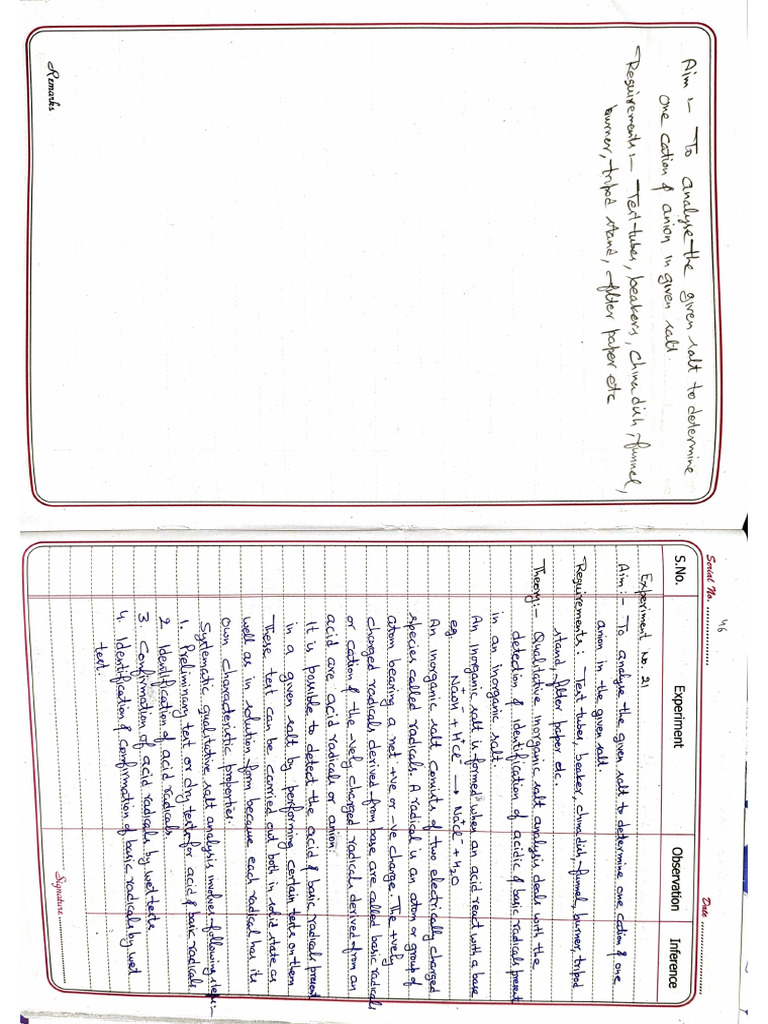 Aim :- To analyse the given salt to determine
one cation & anion in given salt.
Requirements :- Test-tubes, beakers, china dish, funnel,
burner, tripod stand, filter paper etc
Remarks
Serial No. 46
Date
S.No. Experiment Observation Inference
Experiment No. 21
Aim :- To analyse the given salt to determine one cation & one
anion in the given salt.
Requirements : Test tubes, beaker, china dish, funnel, burner, tripod
stand, filter paper etc.
Theory :- Qualitative inorganic salt analysis deals with the
detection & identification of acidic & basic radicals present
in an inorganic salt.
An inorganic salt is formed when an acid react with a base
eg. NaOH + H+Cl- → Na+Cl- + H2O
An inorganic salt consists of two electrically charged
species called radicals. A radical is an atom or group of
atom bearing a net +ve or -ve charge. The +vely
charged radicals derived from base are called basic radicals
or cation & the -vely charged radicals derived from an
acid are acid radicals or anion.
It is possible to detect the acid & basic radicals present
in a given salt by performing certain tests on them
These test can be carried out both in solid state as
well as in solution form because each radical has its
own characteristic properties.
Systematic qualitative salt analysis involves following steps :-
1. Preliminary test or dry tests for acid & basic radicals
2. Identification of acid radicals
3. Confirmation of acid radicals by wet tests
4. Identification & confirmation of basic radicals by wet
test.
Signature